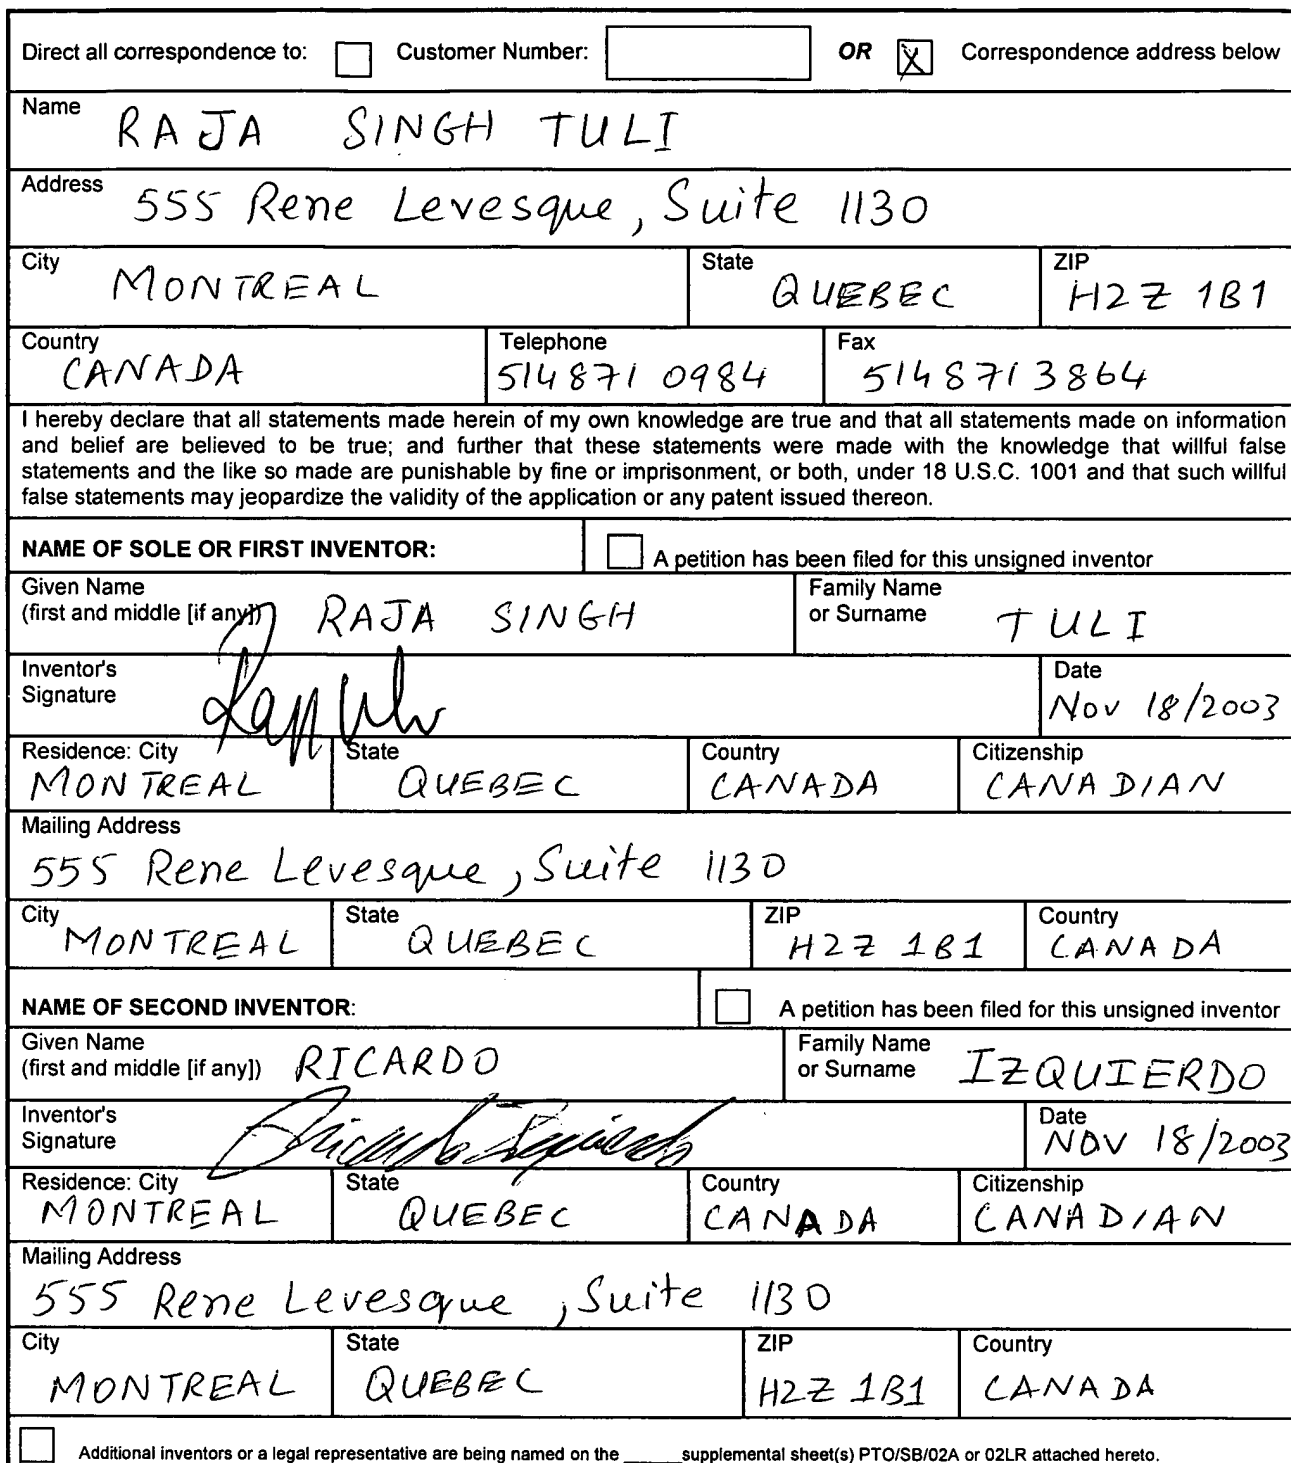 Direct all correspondence to: Customer Number: OR X Correspondence address below
Name RAJA SINGH TULI
Address 555 Rene Levesque, Suite 1130
City MONTREAL State QUEBEC ZIP H2Z 1B1
Country CANADA Telephone 514 871 0984 Fax 514 871 3864
I hereby declare that all statements made herein of my own knowledge are true and that all statements made on information
and belief are believed to be true; and further that these statements were made with the knowledge that willful false
statements and the like so made are punishable by fine or imprisonment, or both, under 18 U.S.C. 1001 and that such willful
false statements may jeopardize the validity of the application or any patent issued thereon.
NAME OF SOLE OR FIRST INVENTOR: A petition has been filed for this unsigned inventor
Given Name
(first and middle [if any]) RAJA SINGH
Family Name
or Surname TULI
Inventor's
Signature
Date
Nov 18/2003
Residence: City MONTREAL State QUEBEC Country CANADA Citizenship CANADIAN
Mailing Address
555 Rene Levesque, Suite 1130
City MONTREAL State QUEBEC ZIP H2Z 1B1 Country CANADA
NAME OF SECOND INVENTOR: A petition has been filed for this unsigned inventor
Given Name
(first and middle [if any]) RICARDO
Family Name
or Surname IZQUIERDO
Inventor's
Signature Ricardo Izquierdo
Date
NOV 18/2003
Residence: City MONTREAL State QUEBEC Country CANADA Citizenship CANADIAN
Mailing Address
555 Rene Levesque, Suite 1130
City MONTREAL State QUEBEC ZIP H2Z 1B1 Country CANADA
Additional inventors or a legal representative are being named on the _____supplemental sheet(s) PTO/SB/02A or 02LR attached hereto.